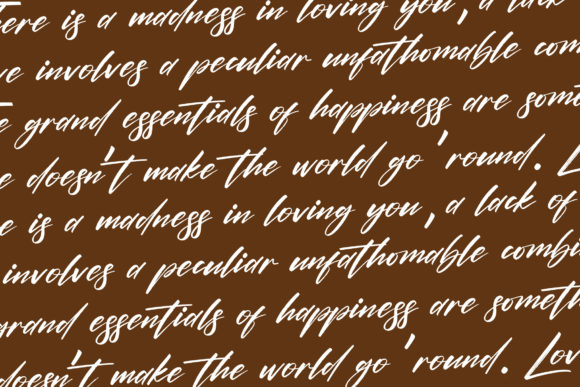 here is a madness in loving you, a lack
ve involves a peculiar unfathomable com
e grand essentials of happiness are som
e doesn't make the world go 'round. L
e is a madness in loving you, a lack of
involves a peculiar unfathomable combi
grand essentials of happiness are someth
doesn't make the world go 'round. Lov